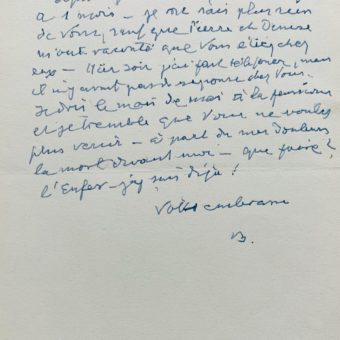 a 1 mois – je ne sais plus rien
de vous, sauf que Pierre et Denise
m'ont raconté que vous étiez chez
eux – Hier soir j'ai fait téléphoner, mais
il n'y avait pas de réponse chez vous.
le mois de mai à la pension
et je tremble que vous ne voulez
plus venir – à part du mes douleurs
la mort devant moi – que faire?
l'Enfer – j'y suis déjà!
Vous embrasse
B.